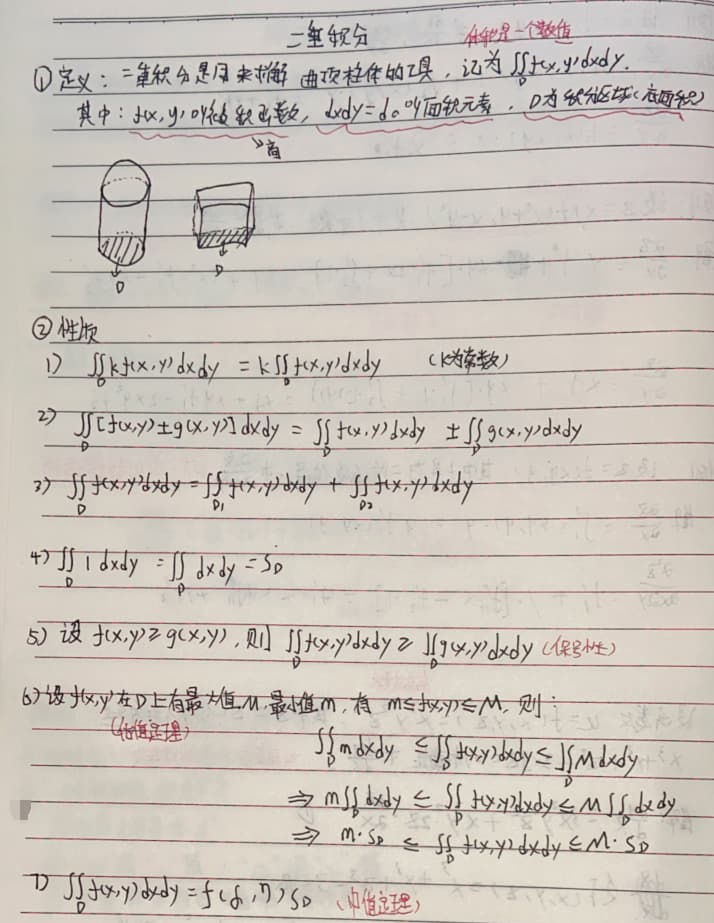 二重积分
体积是一个数值
① 定义：二重积分是用来求解 曲顶柱体的工具，记为 ∬_D f(x,y)dxdy.
其中：f(x,y)叫被积函数，dxdy=dσ叫面积元素，D为积分区域(底面积)
→高
D D
② 性质
1) ∬_D kf(x,y)dxdy = k∬_D f(x,y)dxdy (k为常数)
2) ∬_D [f(x,y)±g(x,y)]dxdy = ∬_D f(x,y)dxdy ± ∬_D g(x,y)dxdy
3) ∬_D f(x,y)dxdy = ∬_D1 f(x,y)dxdy + ∬_D2 f(x,y)dxdy
4) ∬_D 1 dxdy = ∬_D dxdy = S_D
5) 设 f(x,y)≥g(x,y)，则 ∬_D f(x,y)dxdy ≥ ∬_D g(x,y)dxdy (保号性)
6) 设f(x,y)在D上有最大值M，最小值m，有 m≤f(x,y)≤M，则：
(估值定理)
∬_D mdxdy ≤ ∬_D f(x,y)dxdy ≤ ∬_D Mdxdy
⇒ m∬_D dxdy ≤ ∬_D f(x,y)dxdy ≤ M∬_D dxdy
⇒ m·S_D ≤ ∬_D f(x,y)dxdy ≤ M·S_D
7) ∬_D f(x,y)dxdy = f(ξ,η)S_D (中值定理)